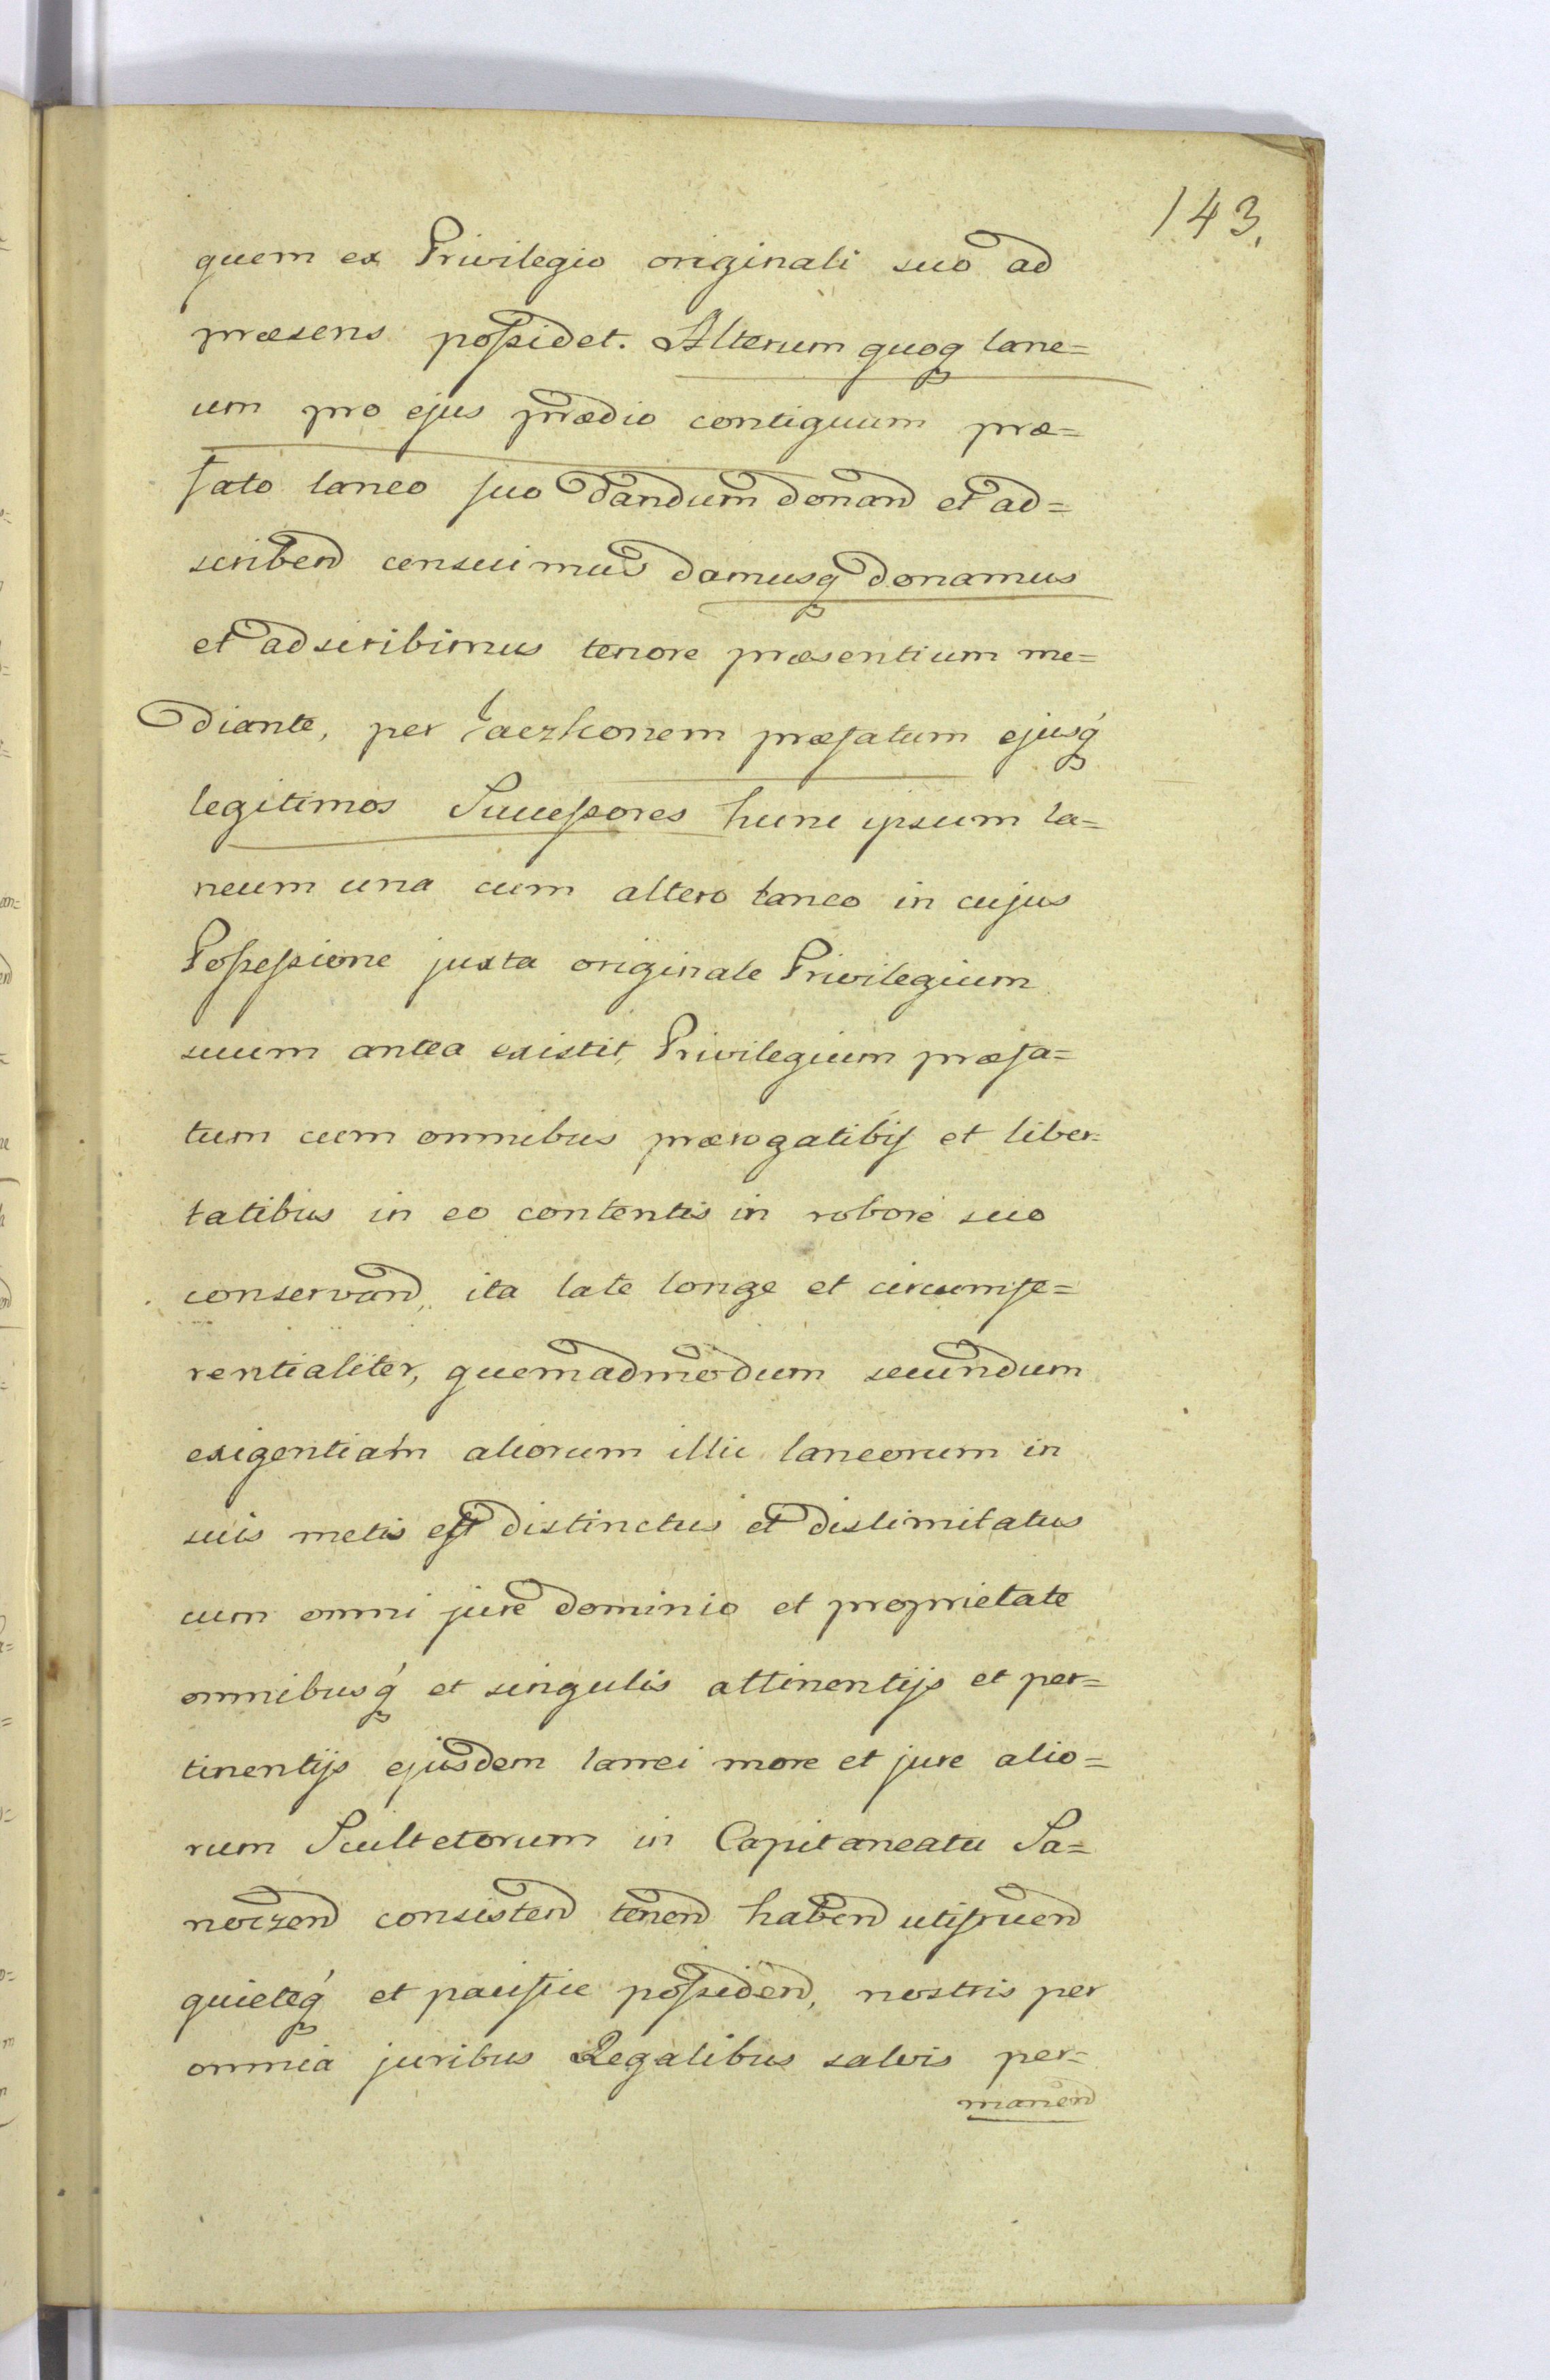 143.
quem ex Privilegio originali suo ad
præsens possidet. Alterum quoq lane=
um pro ejus prædio contiguum præ=
fato laneo suo dandum donand et ad=
scribend censuimus damusq donamus
et adscribimus tenore præsentium me=
diante, per Laezkonem præfatum ejusq
legitimos Successores hunc ipsum la=
neum una cum altero laneo in cujus
Possessione juxta originale Privilegium
suum antea existit, Privilegium præfa=
tum cum omnibus prærogatibis et liber=
tatibus in eo contentis in robore suo
conservand, ita late longe et circumfe=
rentialiter, quemadmodum secundum
exigentiam aliorum illic laneorum in
suis metis est distinctus et dislimitatus
cum omni jure dominio et proprietate
omnibusq et singulis attinentijs et per=
tinentijs ejusdem lanei more et jure alio=
rum Scultetorum in Capitaneatu Sa=
noczen consistend tenend habend utifruend
quieteq et pacifice possidend, nostris per
omnia juribus Regalibus salvis per=
manend